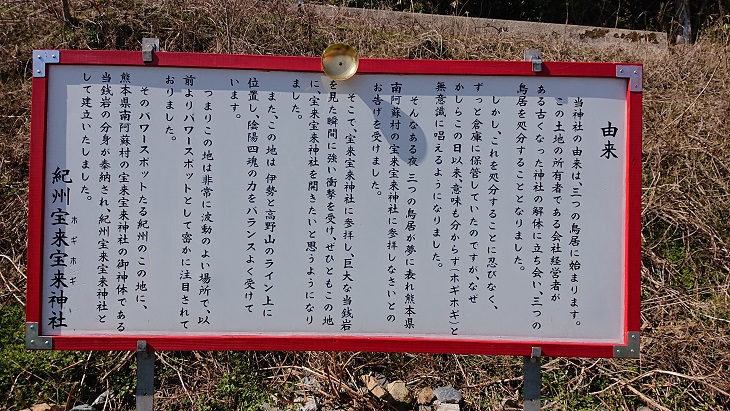 由来
当神社の由来は、三つの鳥居に始まります。
この土地の所有者である会社経営者が
ある古くなった神社の解体に立ち会い、三つの
鳥居を処分することとなりました。
しかし、これを処分することに忍びなく、
ずっと倉庫に保管していたのですが、なぜ
かしらこの日以来、意味も分からず(ホギホギ)と
無意識に唱えるようになりました。
そんなある夜、三つの鳥居が夢に表れ熊本県
南阿蘇村の宝来宝来神社に参拝しなさいとの
お告げを受けました。
そこで、宝来宝来神社に参拝し、巨大な当銭岩
を見た瞬間に強い衝撃を受け、ぜひともこの地
に、宝来宝来神社を開きたいと思うようになり
ました。
また、この地は伊勢と高野山のライン上に
位置し、陰陽四魂の力をバランスよく受けて
います。
つまりこの地は非常に波動のよい場所で、以
前よりパワースポットとして密かに注目されて
おりました。
そのパワースポットたる紀州のこの地に、
熊本県南阿蘇村の宝来宝来神社の御神体である
当銭岩の分身が奉納され、紀州宝来宝来神社と
して建立いたしました。
紀州宝来宝来神社
ホギホギ